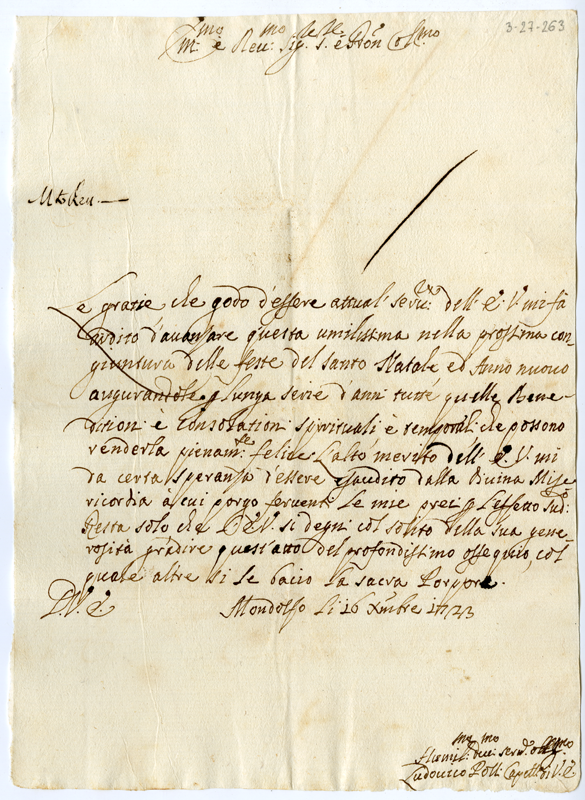 3-27-263
Em:mo e Reu:mo Sig.re S.e è Pron Col:mo
Le grazie che godo d'essere attual' seru:re dell' E. V. mi fà
ardito d'auanzare questa umilissima nella prossima con¬
giuntura delle feste del santo Natale ed Anno nuouo
augurandole p lunga serie d'anni tutte quelle Bene¬
dizioni è Consolationi spirituali è temporali che possono
renderla pienam:te felice. L'alto merito dell' E. V. mi
da certa speranza d'essere esaudito dalla Diuina Mise
ricordia à cui porgo feruenti le mie preci p l'effetto sud:o
Resta solo che l'E. V. si degni col solito della sua gene¬
rosità gradire quest'atto del profondissimo ossequio, col
quale altresi le bacio la sacra Porpora.
D. V. E.
Mondolfo li 16 Xmbre 1723
Humil:mo deu:mo seru:
Ludouico